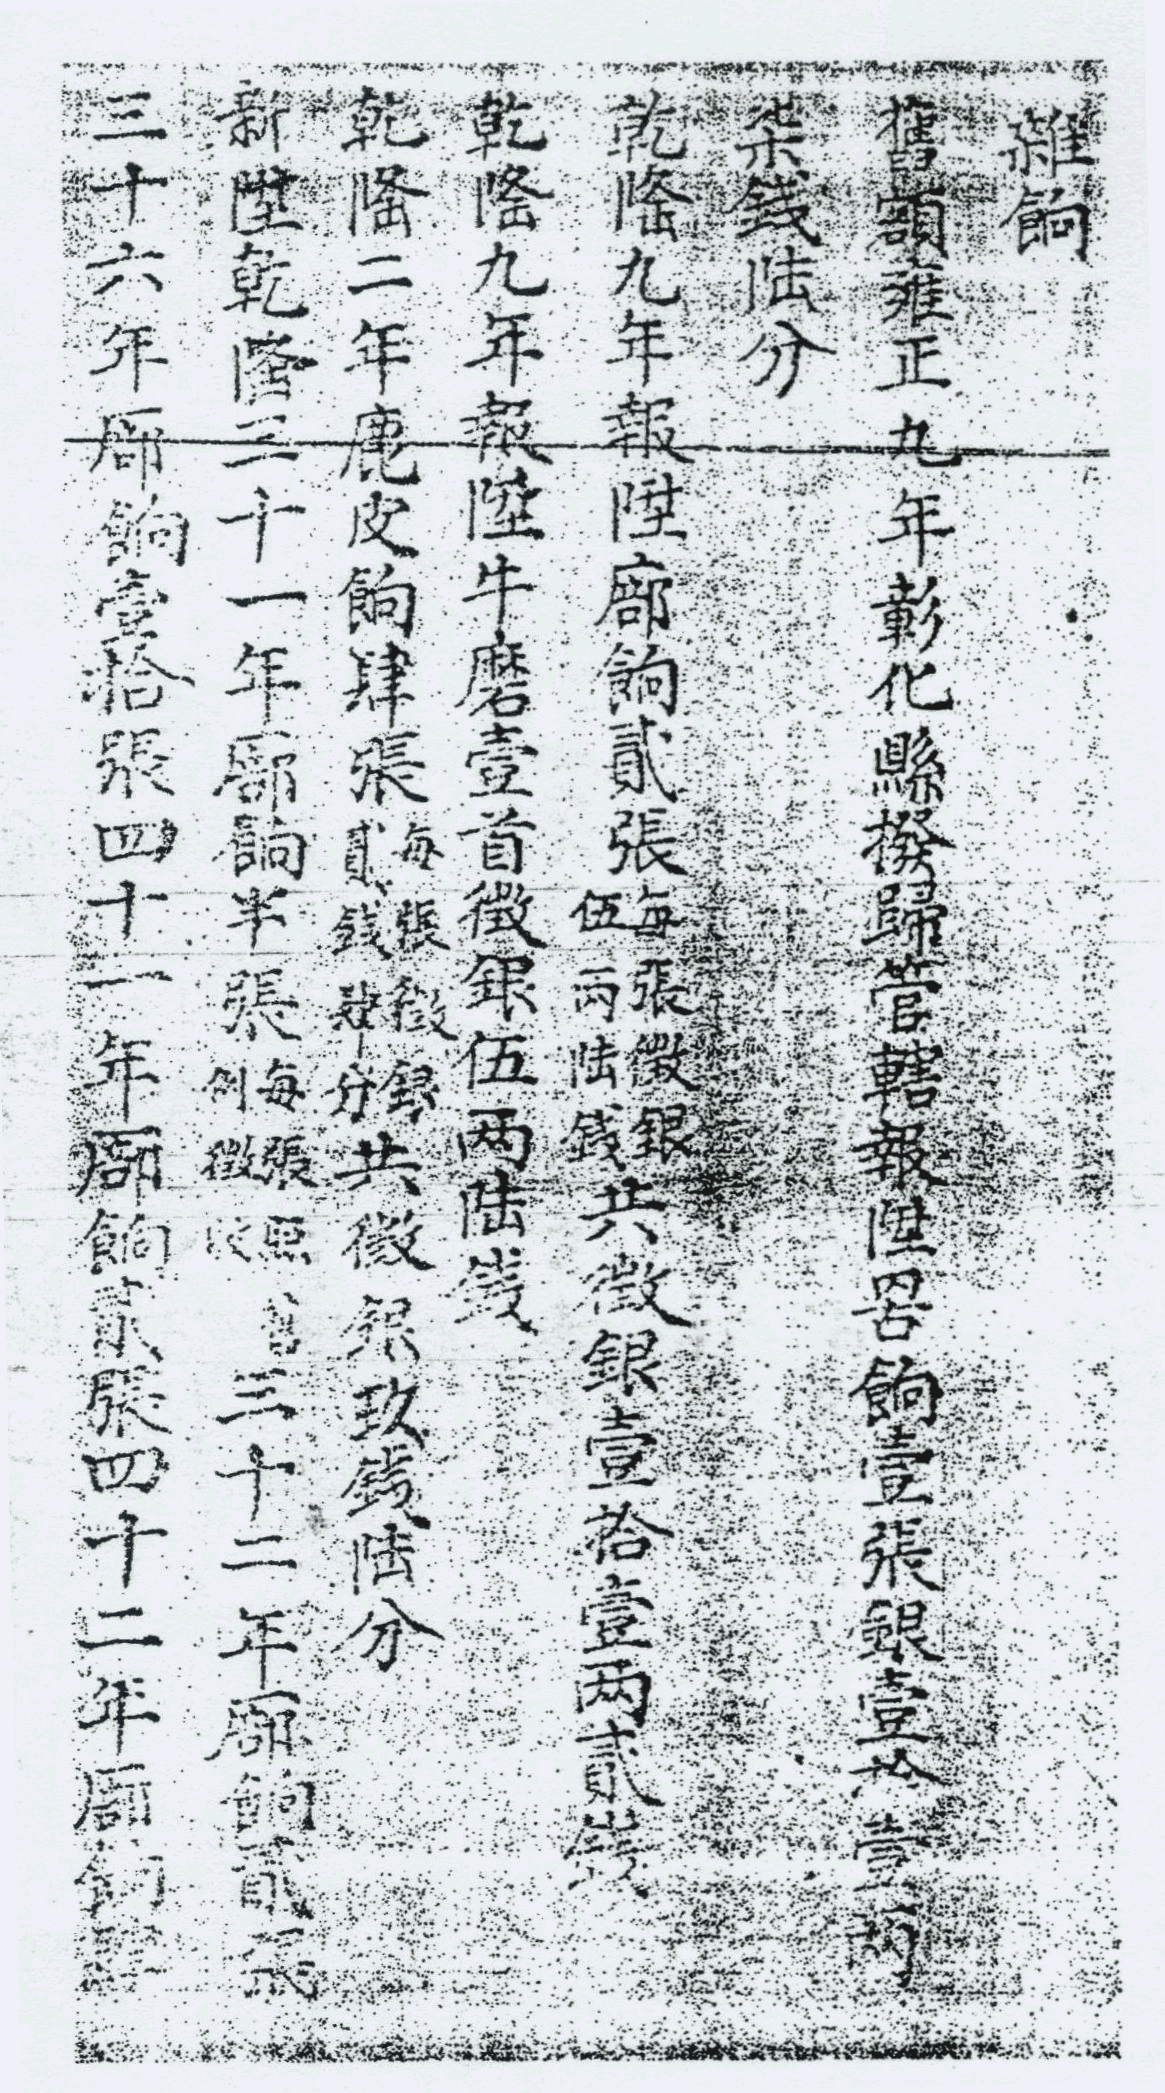 雜餉
舊額雍正九年彰化縣撥歸管轄報陞罟餉壹張銀壹拾壹兩
柒錢陸分
乾隆九年報陞廍餉貳張每張徵銀伍兩陸錢共徵銀壹拾壹兩貳錢
乾隆九年報陞牛磨壹首徵銀伍兩陸錢
乾隆二年鹿皮餉肆張每張徵銀貳錢肆分共徵銀玖錢陸分
新陞乾隆三十一年廍餉半張每張照舊例徵收三十二年廍餉貳張
三十六年廍餉壹拾張四十一年廍餉貳張四十二年廍餉